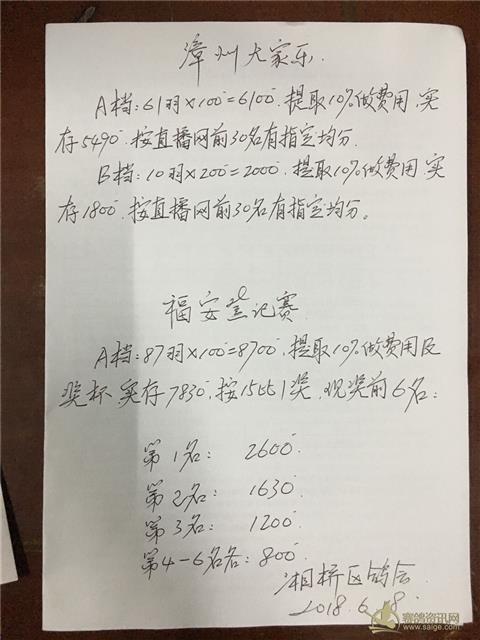 漳州大家乐.
A档：61羽×100=6100.提取10%做费用,实
存5490.按直播网前30名有指定均分.
B档：10羽×200=2000.提取10%做费用.实
存1800.按直播网前30名有指定均分。
福安登记赛.
A档：87羽×100=8700.提取10%做费用及
奖杯.实存7830.按15551奖.现奖前6名：
第1名： 2600.
第2名： 1630.
第3名： 1200.
第4-6名各：800.
湘桥区鸽会.
2018.6.8.
赛鸽资讯网
www.saige.com